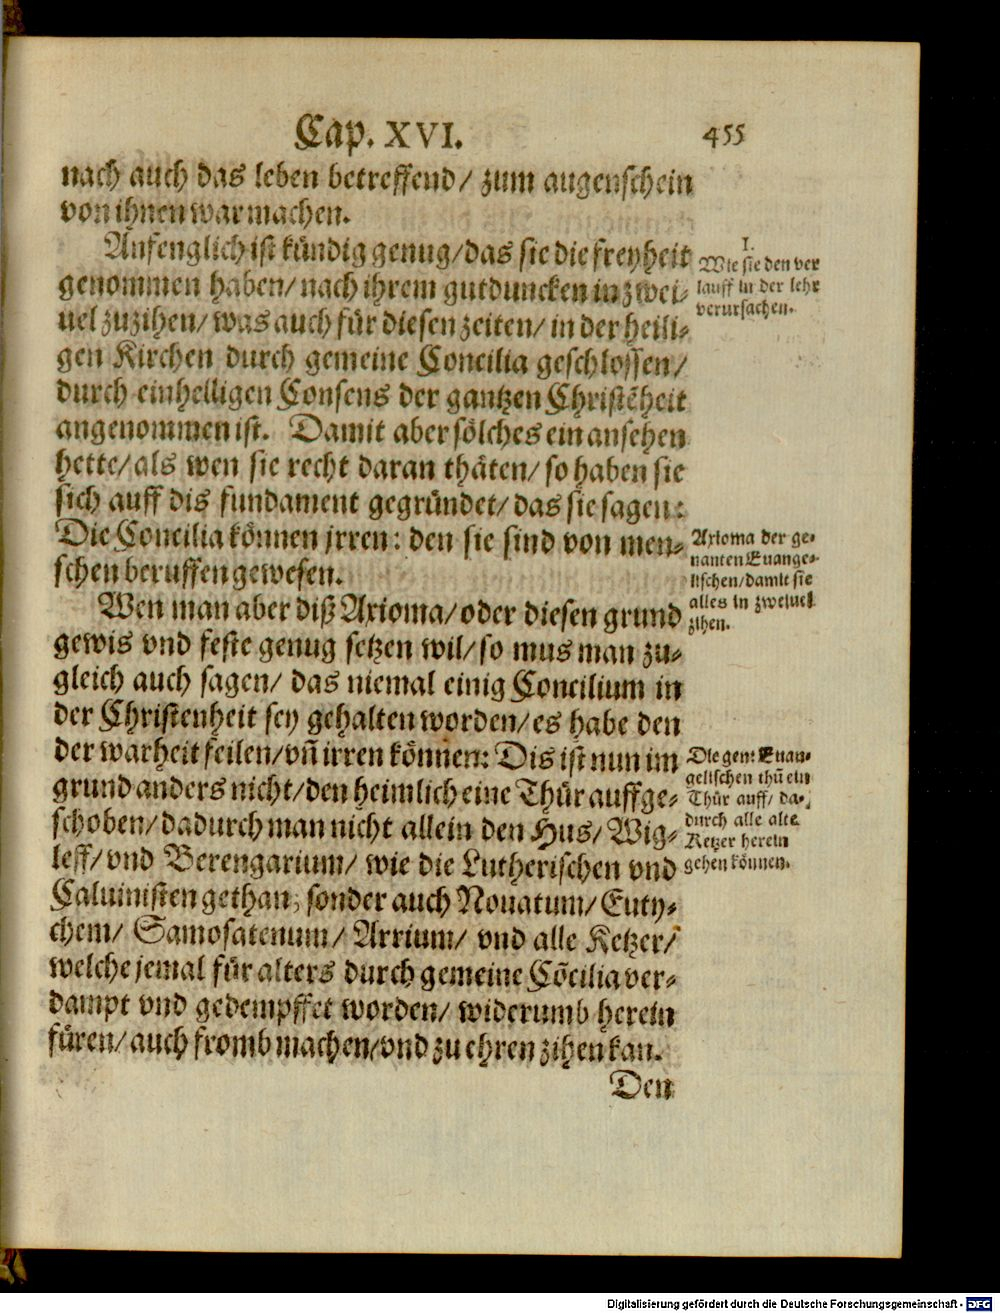 Cap. XVI. 455
nach auch das leben betreffend/ zum augenschein
von ihnen war machen.
Anfenglich ist kündig genug/das sie die freyheit
genommen haben/nach ihrem gutduncken in zwei⸗
uel zuzihen/ was auch für diesen zeiten/ in der heili⸗
gen Kirchen durch gemeine Concilia geschlossen/
durch einhelligen Consens der gantzen Christēheit
angenommen ist. Damit aber sölches ein ansehen
hette/als wen sie recht daran thäten/ so haben sie
sich auff dis fundament gegründet/ das sie sagen:
Die Concilia können jrren: den sie sind von men⸗
schen beruffen gewesen.
Wen man aber diß Axioma/oder diesen grund
gewis vnd feste genug setzen wil/ so mus man zu⸗
gleich auch sagen/ das niemal einig Concilium in
der Christenheit sey gehalten worden/es habe den
der warheit feilen/vñ irren können: Dis ist nun im
grund anders nicht/den heimlich eine Thür auffge⸗
schoben/dadurch man nicht allein den Hus/ Wig⸗
leff/ vnd Berengarium/ wie die Lutherischen vnd
Caluinisten gethan, sonder auch Nouatum/ Euty⸗
chem/ Samosatenum/ Arrium/ vnd alle Ketzer/
welche jemal für alters durch gemeine Cōcilia ver⸗
dampt vnd gedempffet worden/ widerumb herein
füren/ auch fromb machen/vnd zu ehren zihen kan.
Den
1.
Wie sie den ver
lauff in der lehr
verursachen.
Axioma der ge⸗
nanten Euange⸗
lischen/damit sie
alles in zweiuel
zihen.
Die gen: Euan⸗
gelischen thū ein
Thür auff/ da⸗
durch alle alte
Ketzer herein
gehen können.
Digitalisierung gefördert durch die Deutsche Forschungsgemeinschaft - DFG